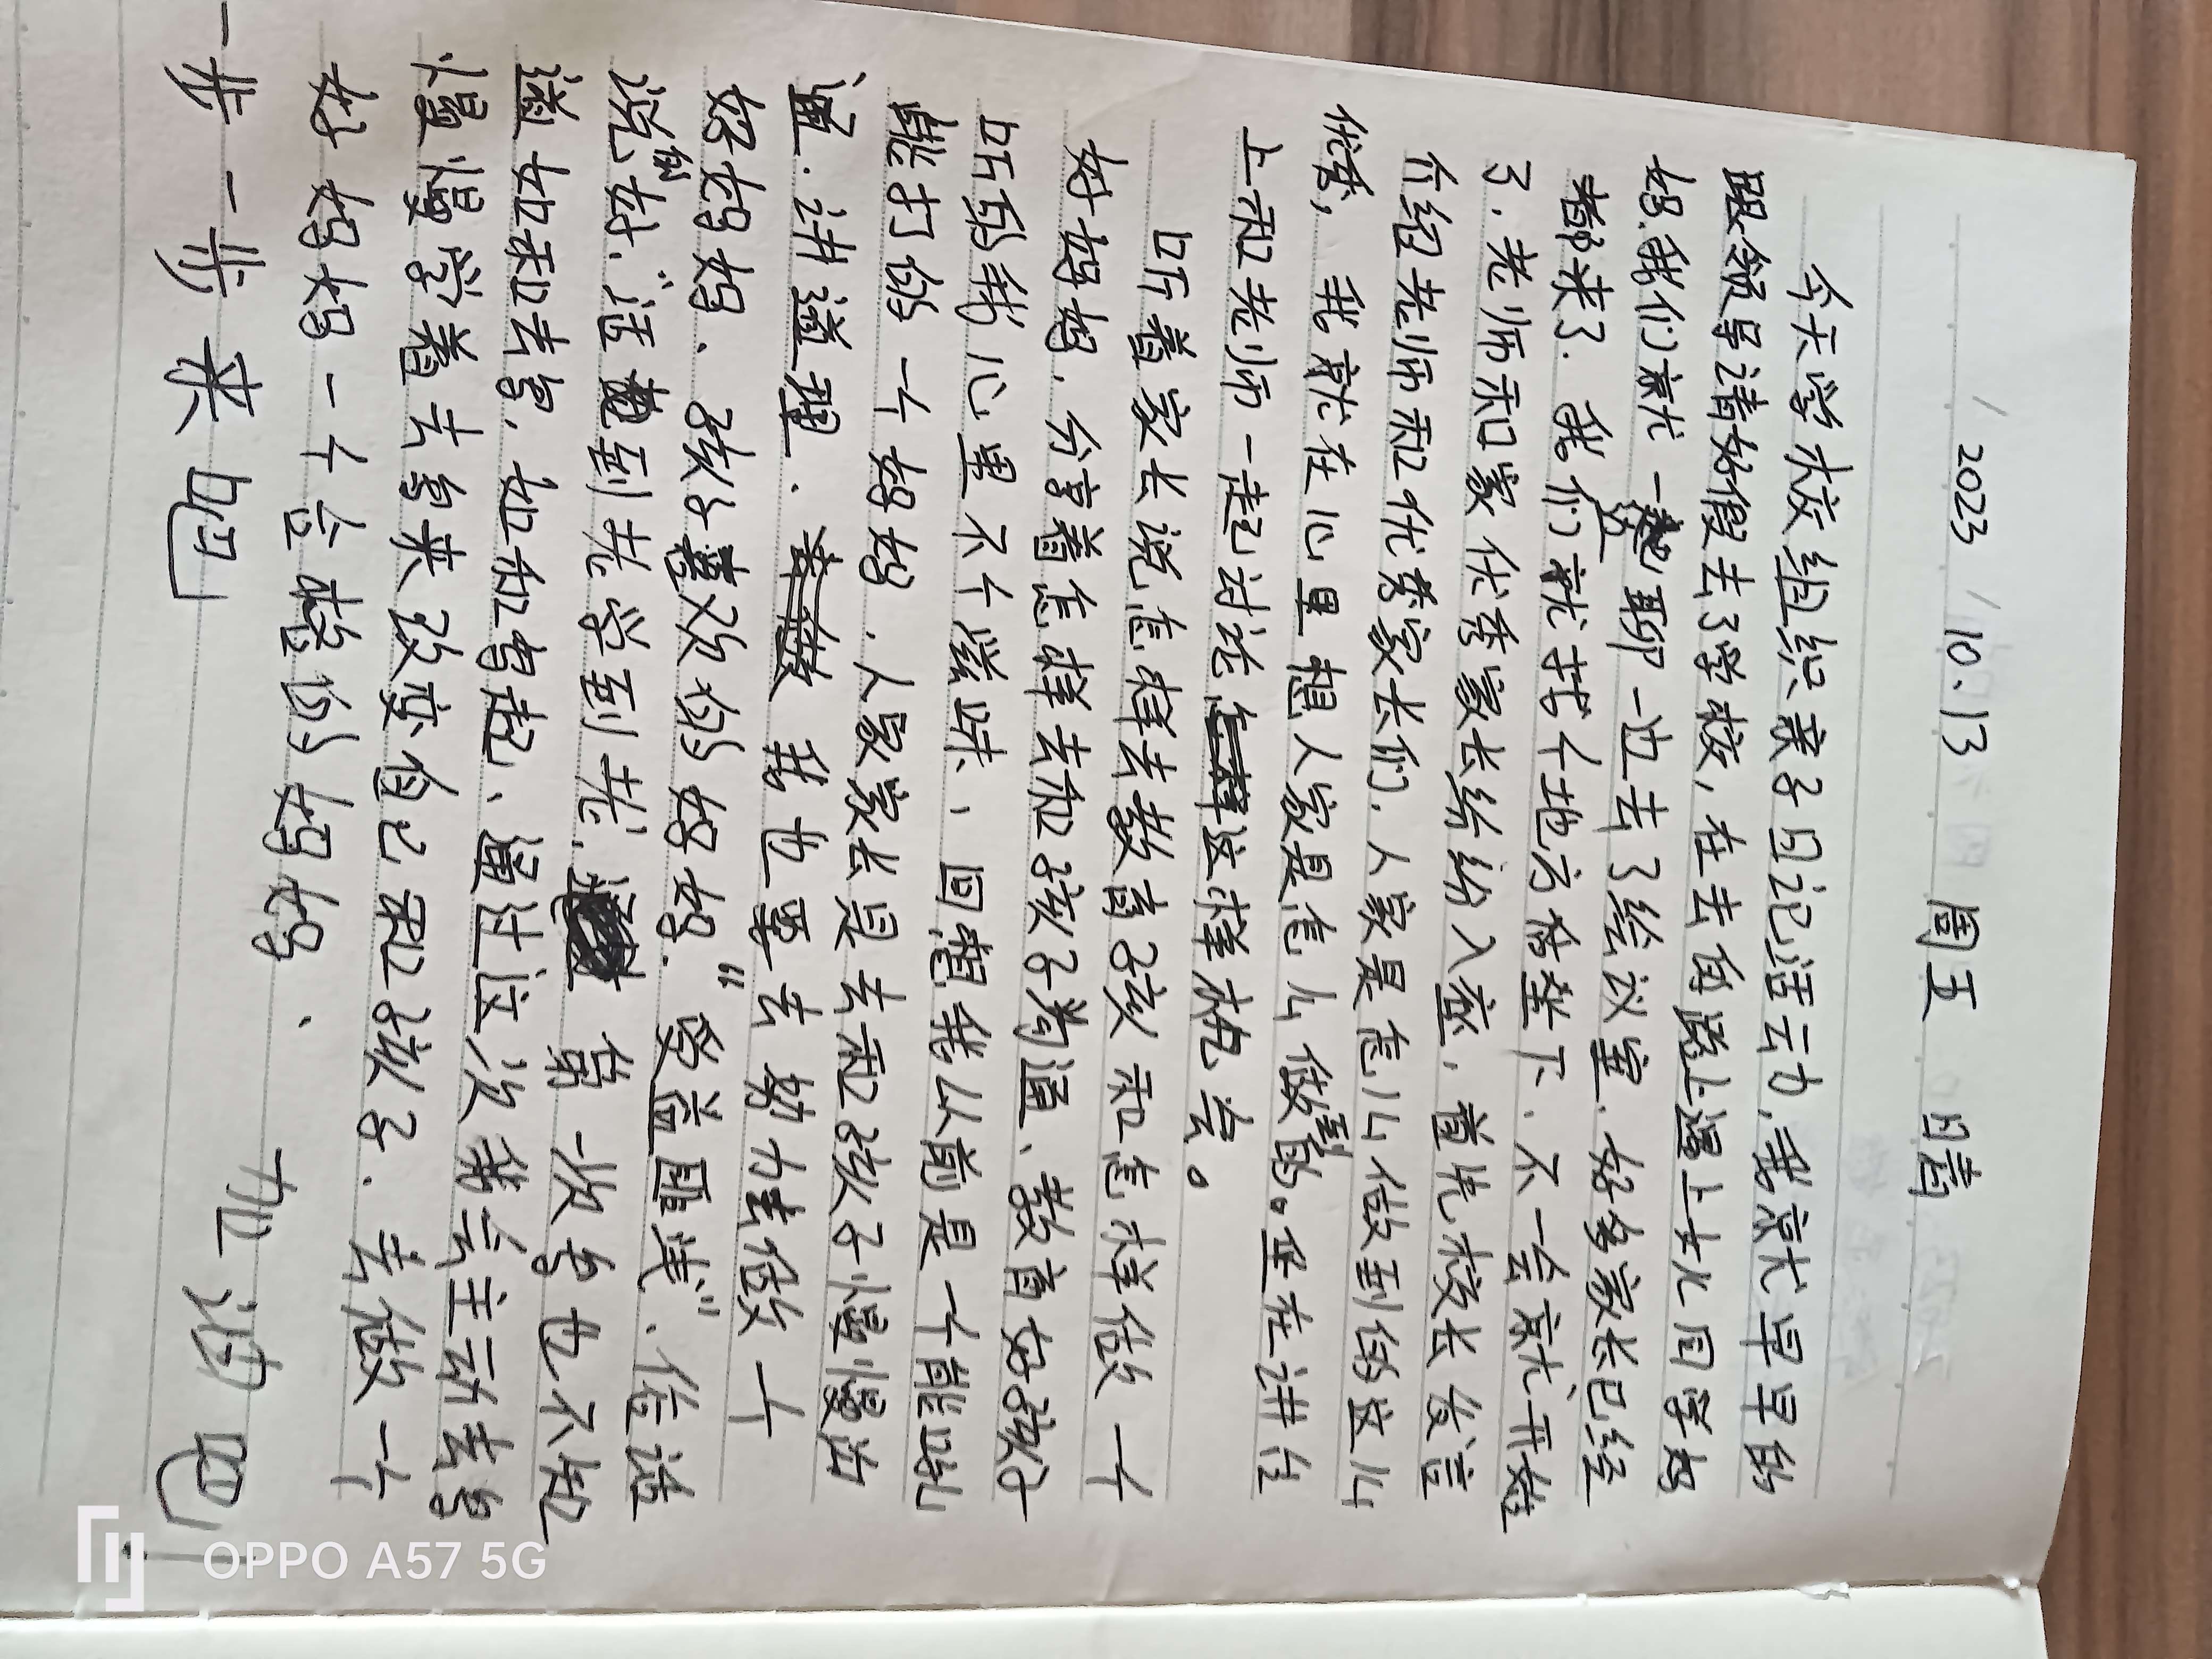 2023/10.13 周五 日晴
今天学校组织亲子日记活动,我就早早的
跟领导请好假去了学校,在去的路上遇上十几同学妈
妈.我们就一边聊一边去了会议室.好多家长已经
都来了.我们就找个地方偖坐下.不一会就开始
了.老师和家优秀家长纷纷入座.首先校长发言
介绍老师和优秀家长们.人家是怎么做到的这么
优秀,我就在心里想人家是怎么做到的。坐在讲台
上和老师一起讨论这样机会。
听着家长说怎样去教育孩和怎样做一个
好妈妈.分享着怎样去和孩子沟通、教育好孩子
听到我心里不个滋味、回想我以前是一个能吼
能打的一个妈妈.人家家长是去和孩子慢慢沟
通.讲道理.我也要去努力去做一个
好妈妈、孩子喜欢的妈妈."受益匪浅".俗话
说的好."活到老学到老.第一次写也不知
道如和去写.如和写起、通过这次我会主动去写
慢慢学着去写来改变自己和孩子.去做一个
好妈妈一个合格的妈妈、
一步一步来吧 加油吧
OPPO A57 5G